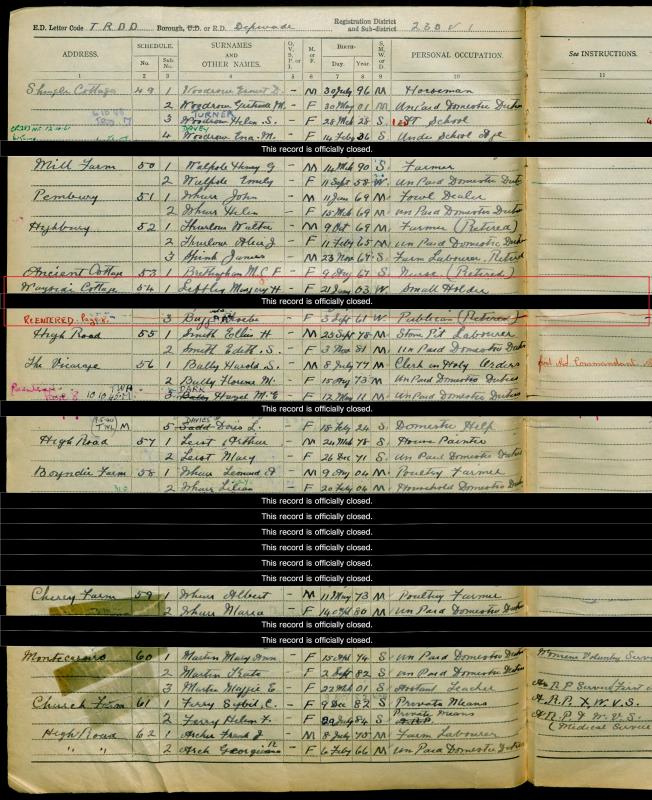 E.D. Letter Code T.R.D.D Borough, U.D. or R.D. Depwade Registration District and Sub-district 230 V 1
ADDRESS. SCHEDULE. No. Sub. No. SURNAMES AND OTHER NAMES. O, V, S, P, or I M. or F. BIRTH— Day. Year. S, M, W, or D. PERSONAL OCCUPATION. See INSTRUCTIONS.
1 2 3 4 5 6 7 8 9 10 11
Shingle Cottage 49 1 Woodrow Ernest D. - M 30 July 96 M Horseman
2 Woodrow Gertrude M. - F 30 May 01 M Unpaid Domestic Duties
TURNER
3 Woodrow Helen S. - F 28 Mch 28 S At School
DAVEY
4 Woodrow Ena M. - F 14 Feby 36 S Under School Age
This record is officially closed.
Mill Farm 50 1 Walpole Henry G - M 14 Mch 90 S Farmer
2 Walpole Emily - F 11 Sept 58 W. Un Paid Domestic Dut
Pembury 51 1 Whurr John - M 11 Jan 69 M Fowl Dealer
2 Whurr Helen - F 15 Mch 69 M un Paid Domestic Duties
Highbury 52 1 Thurlow Walter - M 9 Oct 69 M Farmer (Retired)
2 Thurlow Alice J - F 11 Feby 65 M un Paid Domestic Duties
3 James - M 23 Nov 64 S Farm Labourer. Retired
Ancient Cottage 53 1 M C F - F 67 S Nurse (Retired)
Wayside Cottage 54 1 H - F 21 Jany 03 W Small Holder
This record is officially closed.
REENTERED. Page 3 Phoebe - F 3 Sept 61 W. Publican (Retired)
High Road 55 1 Smith Ellis H - M 23 Sept 78 M Stone Pit Labourer
2 Smith Edith. S. - F 3 Mch 81 M un Paid Domestic Duties
The Vicarage 56 1 Bally Harold S. - M 8 July 77 M Clerk in Holy Orders Commandant
2 Bally Florence M. - F 15 May 73 M un Paid Domestic Duties
PARR
3 Bally Hazel M. E - F 12 May 11 M un Paid Domestic Duties
This record is officially closed.
DAVIES
5 Doris L. - F 18 Feby 24 S Domestic Help
High Road 57 1 Leist Arthur - M 24 Mch 78 S House Painter
2 Leist Mary - F 26 Dec 71 S un Paid Domestic Duties
Boyndie Farm 58 1 Whurr Leonard A - M 9 Aug 04 M Poultry Farmer
2 Whurr Lilian - F 20 Feby 04 M Household Domestic Dut
This record is officially closed.
This record is officially closed.
This record is officially closed.
This record is officially closed.
This record is officially closed.
This record is officially closed.
Cherry Farm 59 1 Whurr Albert - M 11 May 73 M Poultry Farmer
2 Whurr Maria - F 14 Oct 80 M un Paid Domestic Dut
This record is officially closed.
This record is officially closed.
60 1 Martin Mary Ann - F 15 74 S un Paid Domestic Duties Womens Voluntary Serv
2 Martin Kate - F 2 Sept 82 S un Paid Domestic Duties
3 Martin Magie E - F 22 Mch 01 S Assistant Teacher A.R.P Service/First
Church Farm 61 1 Ferry Sybil C. - F 9 Dec 82 S Private Means A.R.P. & W.V.S.
2 Ferry Helen F. - F 29 July 84 S Private Means A.R.P. A.R.P. & W.V.S.
High Road 62 1 Archer Frank J - M 8 July 70 M Farm Labourer (Medical Service
" " 2 Arch Georgiana - F 6 July 66 M un Paid Domestic Duties